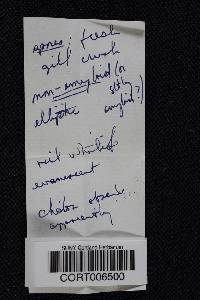 spores: fresh
gill crush
non-amyloid (or
slightly
amyloid?)
elliptic
veil whitish
evanescent
absent
apparently....
SUNY Cortland Herbarium
CORT006500